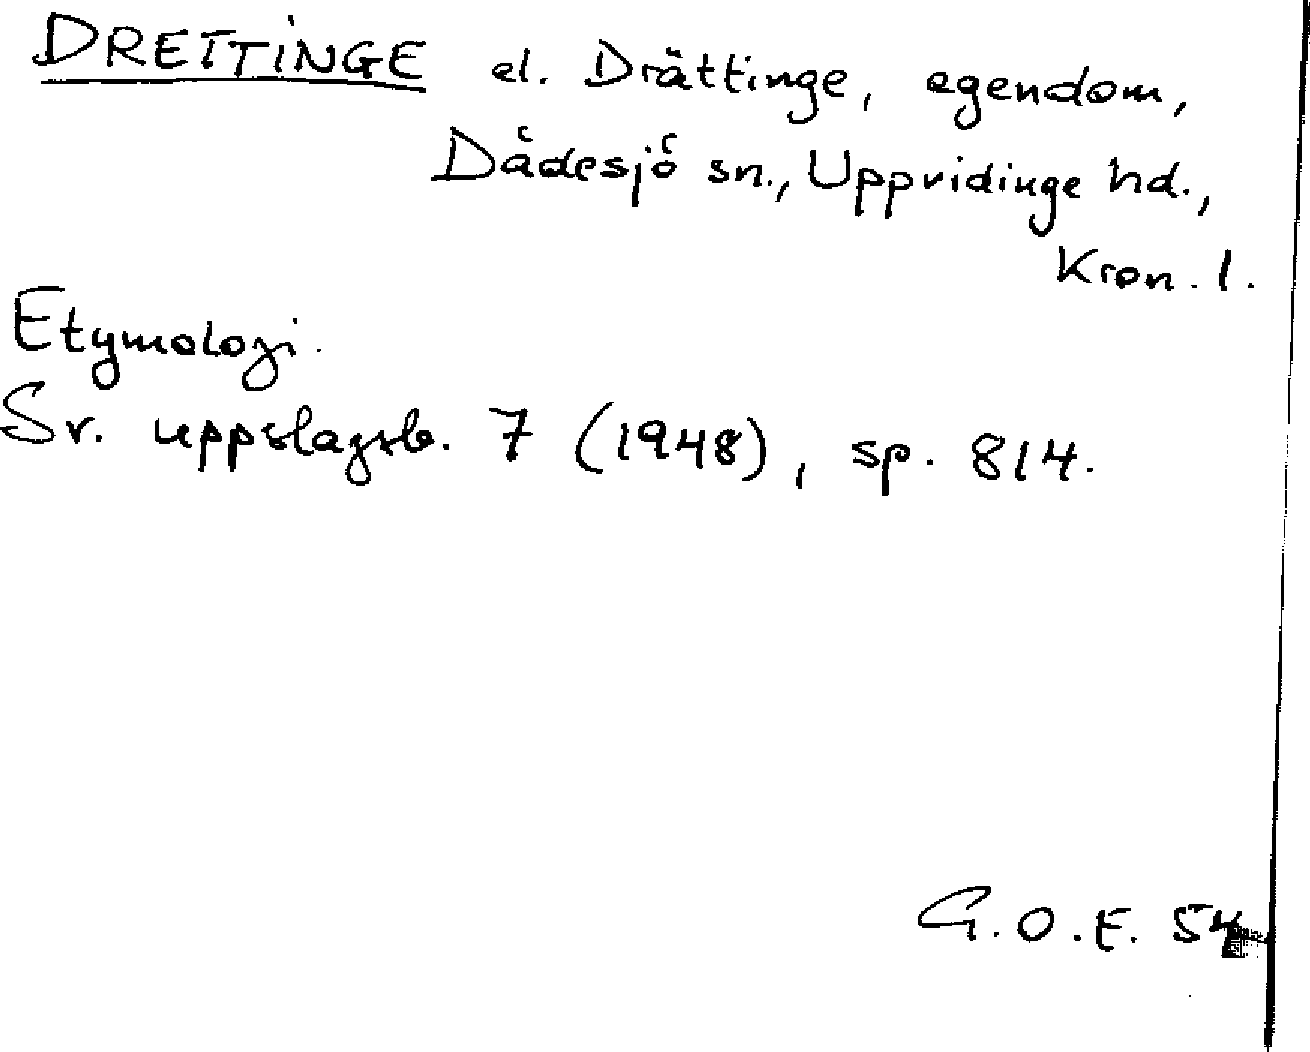 DRETTINGE el. Drättinge, egendom,
Dådesjö sn., Uppvidinge hd.,
Kron. l.
Etymologi.
Sv. uppslagsb. 7 (1948), sp. 814.
G.O.E. 54